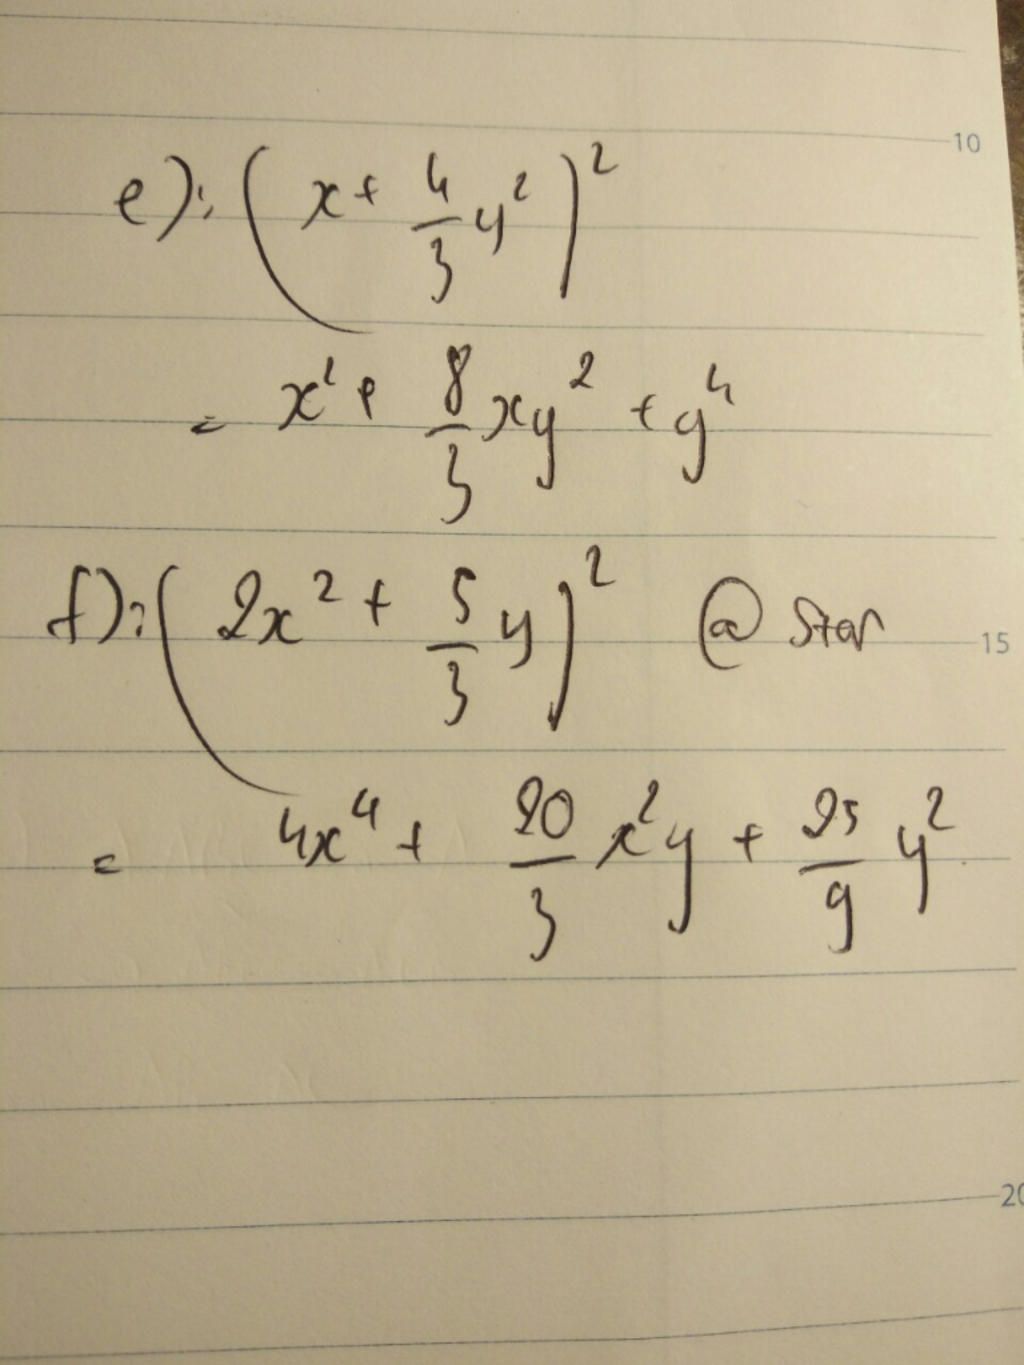 10
e): (x + 4/3 y²)²
= x² + 8/3 xy² + y⁴
f): (2x² + 5/3 y)² @ Star
15
= 4x⁴ + 20/3 x²y + 25/9 y²
20